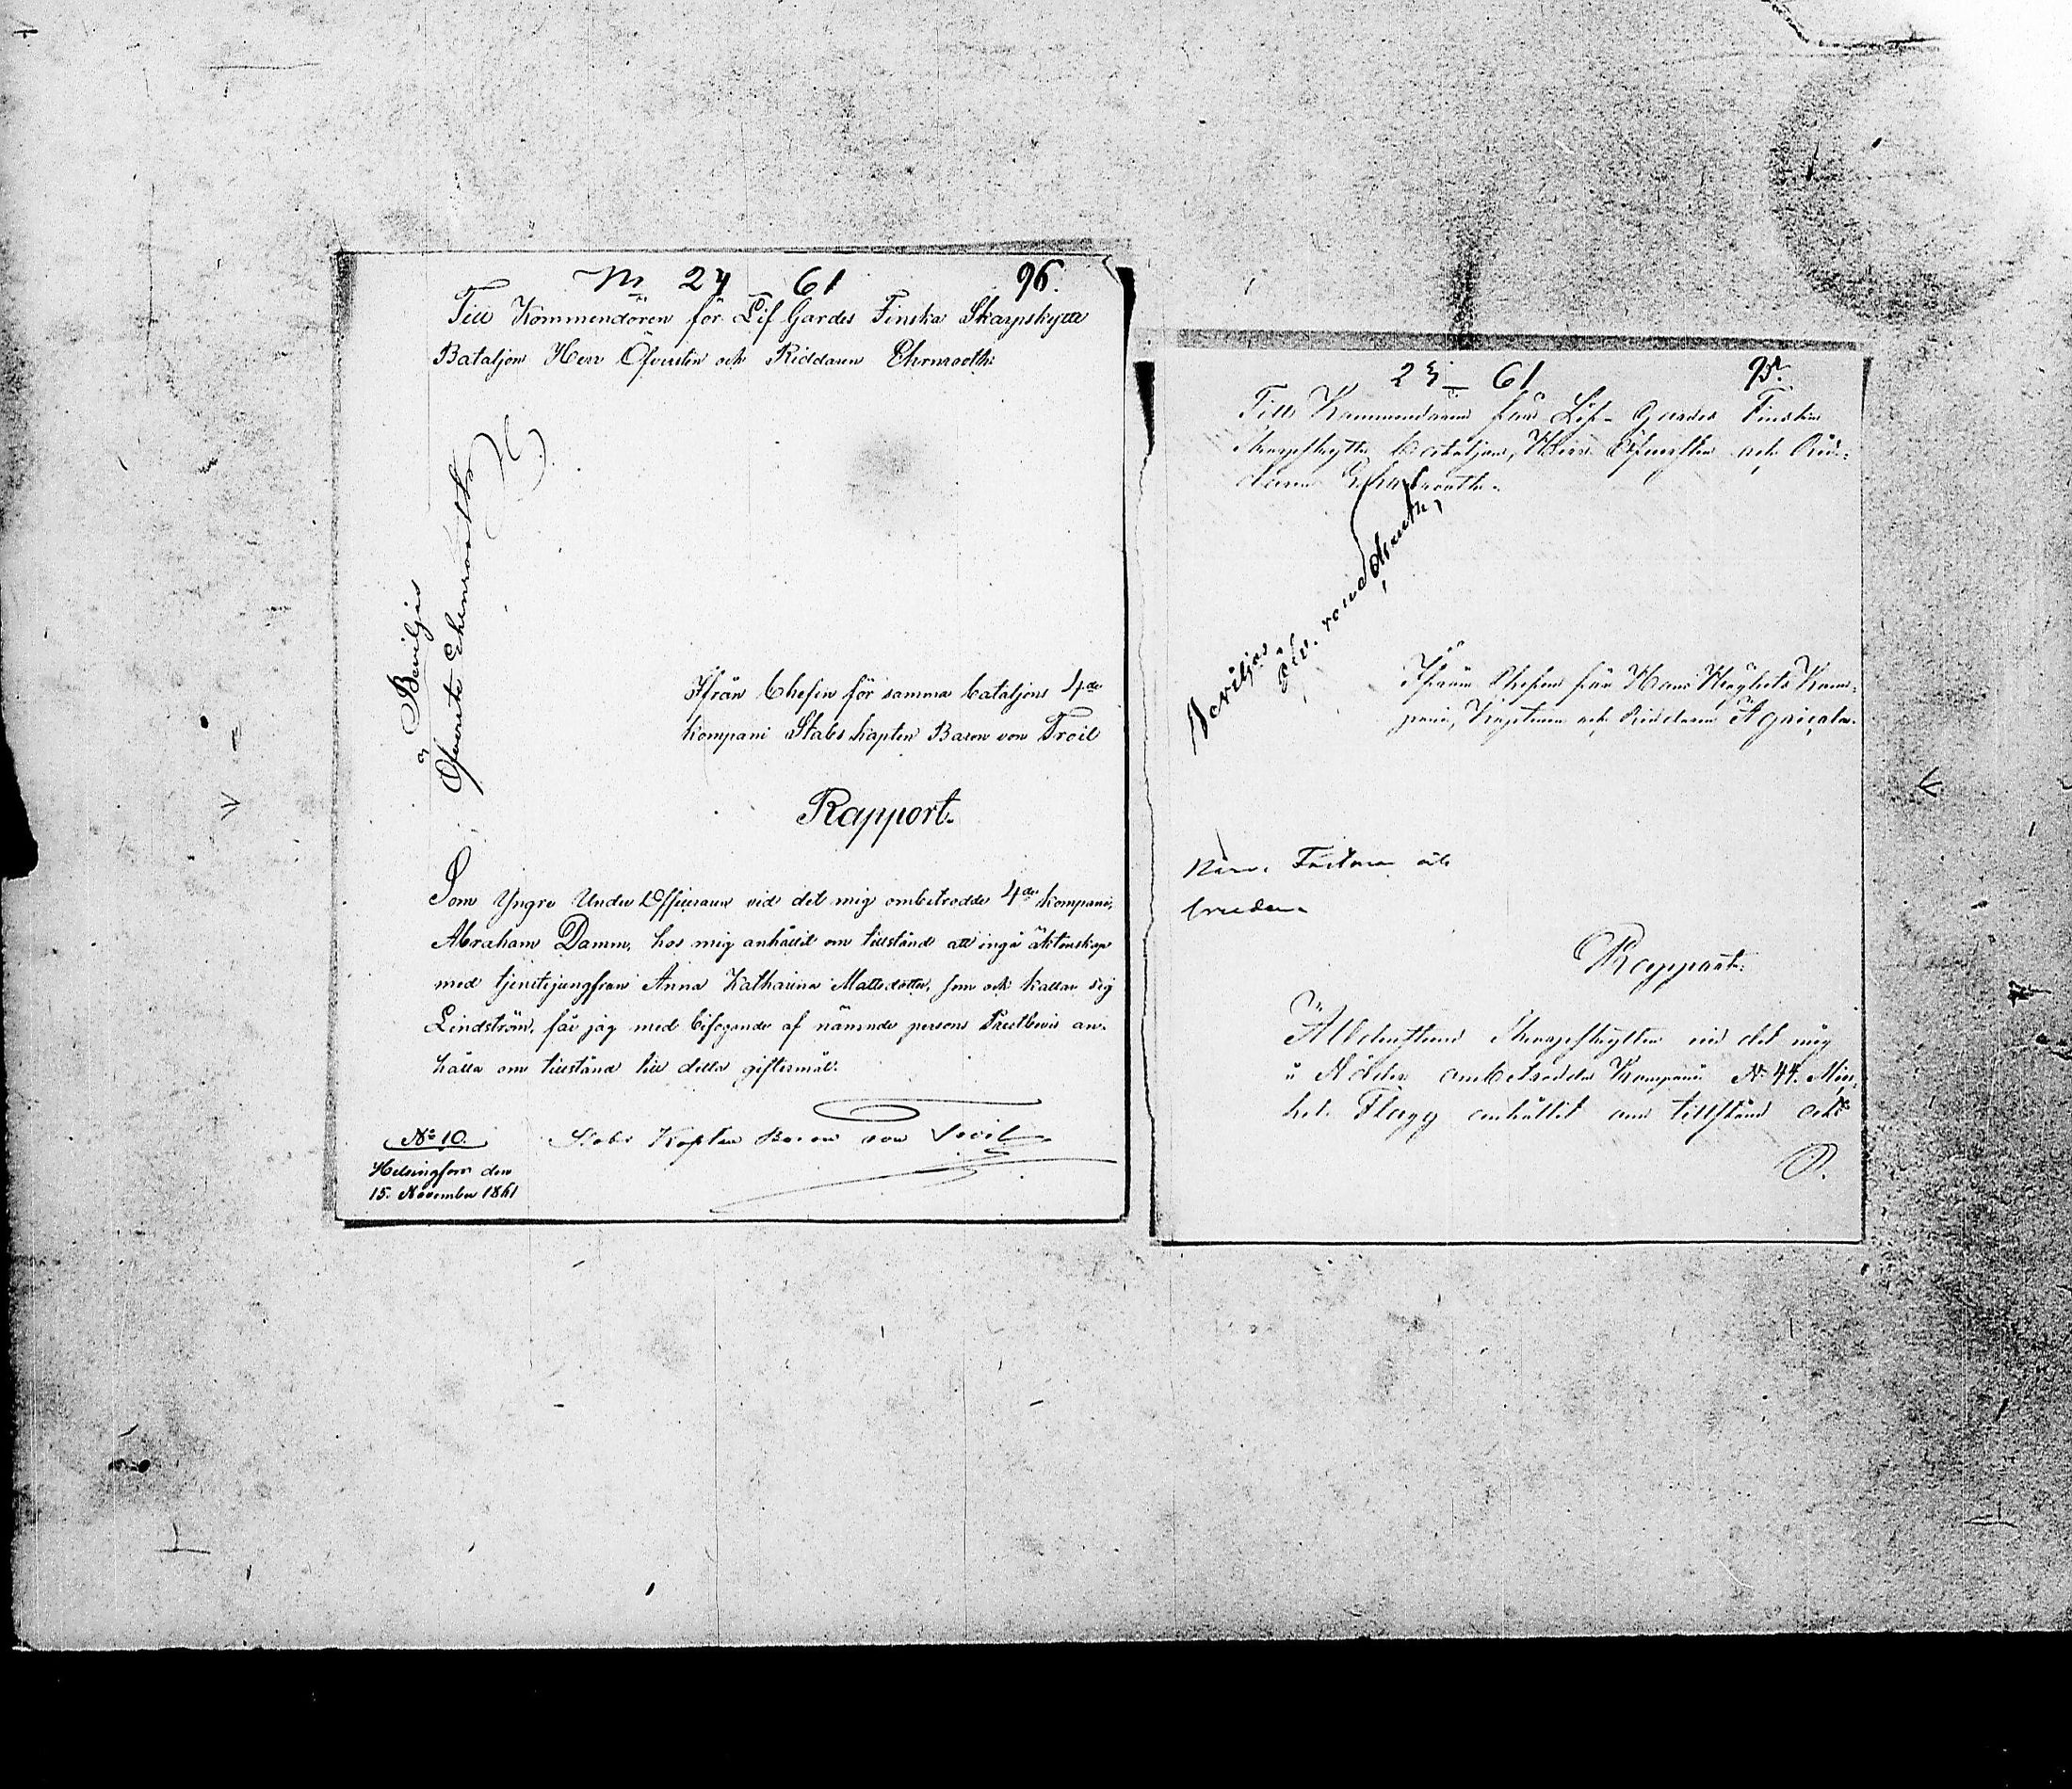 24 61 96.
Till Kommendören för Lif Gardes Finska Skarpskytte
Bataljon Herr Öfversten och Riddaren Ehrnrooth.
Beviljas
Öfverste Ehrnrooth
Ifrån Chefen för samma bataljons 4de
Kompani Stabskapten Baron von Troil
Rapport.
Som Yngre Under Officeraren vid det mig ombetrodde 4de Kompani,
Abraham Damm, hos mig anhållit om tillstånd att ingå äktenskap
med tjenstejungfrun Anna Katharina Mattsdotter, som ock kallar sig
Lindström, får jag med bifogande af nämnde persons Prestbevis an-
hålla om tillstånd till detta giftermål.
Stabs Kapten Baron von Troil
No 10.
Helsingfors den
15. November 1861
61
Till Kommendören för Lif-Gardes Finska
Skarpskytte bataljon, Herr Öfversten och Rid-
daren Ehrnrooth.
Beviljas
Ifrån Chefen för Hans Höghets Kom-
pani, Kaptenen och Riddaren Agricola.
Rapport.
Skarpskytten vid det mig
i Nåder ombetrodda Kompani No 44. Mic-
kel Flagg anhållit om tillstånd att